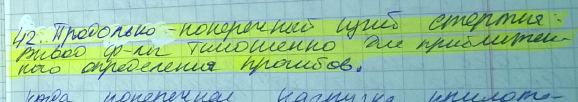 42. Продольно-поперечный изгиб стержня.
Вывод ф-лы Тимошенко для приближен-
ного определения прогибов.
когда поперечная нагрузка приложе-